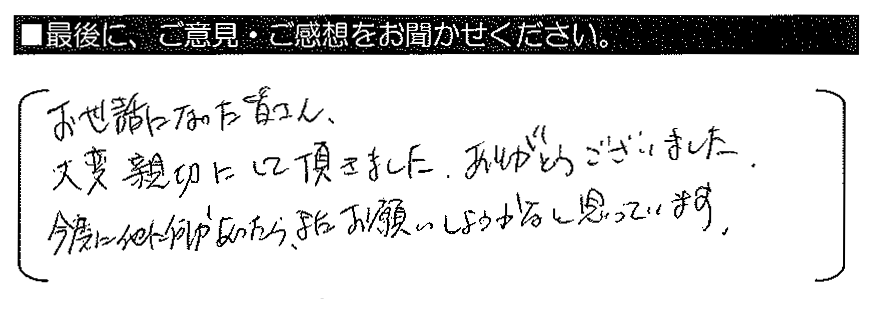 ■最後に、ご意見・ご感想をお聞かせください。
お世話になった皆さん、
大変親切にして頂きました。ありがとうございました。
今度に他に何かあったら、またお願いしようかなと思っています。